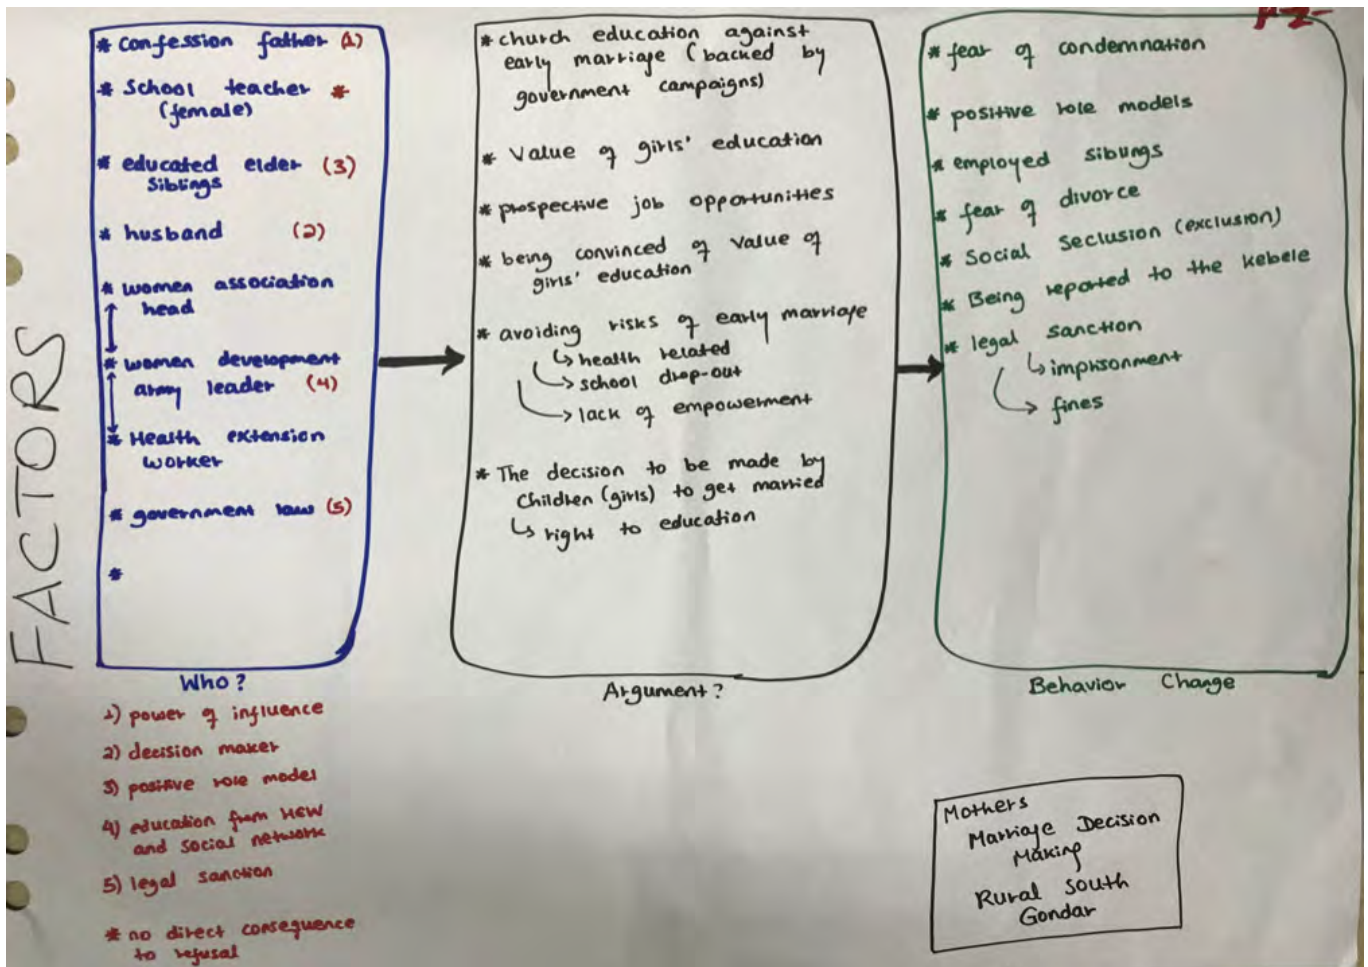 FACTORS
* confession father (1)
* School teacher *
(female)
* educated elder (3)
siblings
* husband (2)
* women association
head
* women development
army leader (4)
* Health extension
worker
* government law (5)
*
Who?
1) power of influence
2) decision maker
3) positive role model
4) education from HEW
and social network
5) legal sanction
* no direct consequence
to refusal
* church education against
early marriage (backed by
government campaigns)
* Value of girls' education
* prospective job opportunities
* being convinced of value of
girls' education
* avoiding risks of early marriage
health related
school drop-out
lack of empowerment
* The decision to be made by
children (girls) to get married
right to education
Argument?
* fear of condemnation
* positive role models
* employed siblings
* fear of divorce
* Social Seclusion (exclusion)
* Being reported to the kebele
* legal sanction
imprisonment
fines
Behavior Change
Mothers
Marriage Decision
Making
Rural South
Gondar